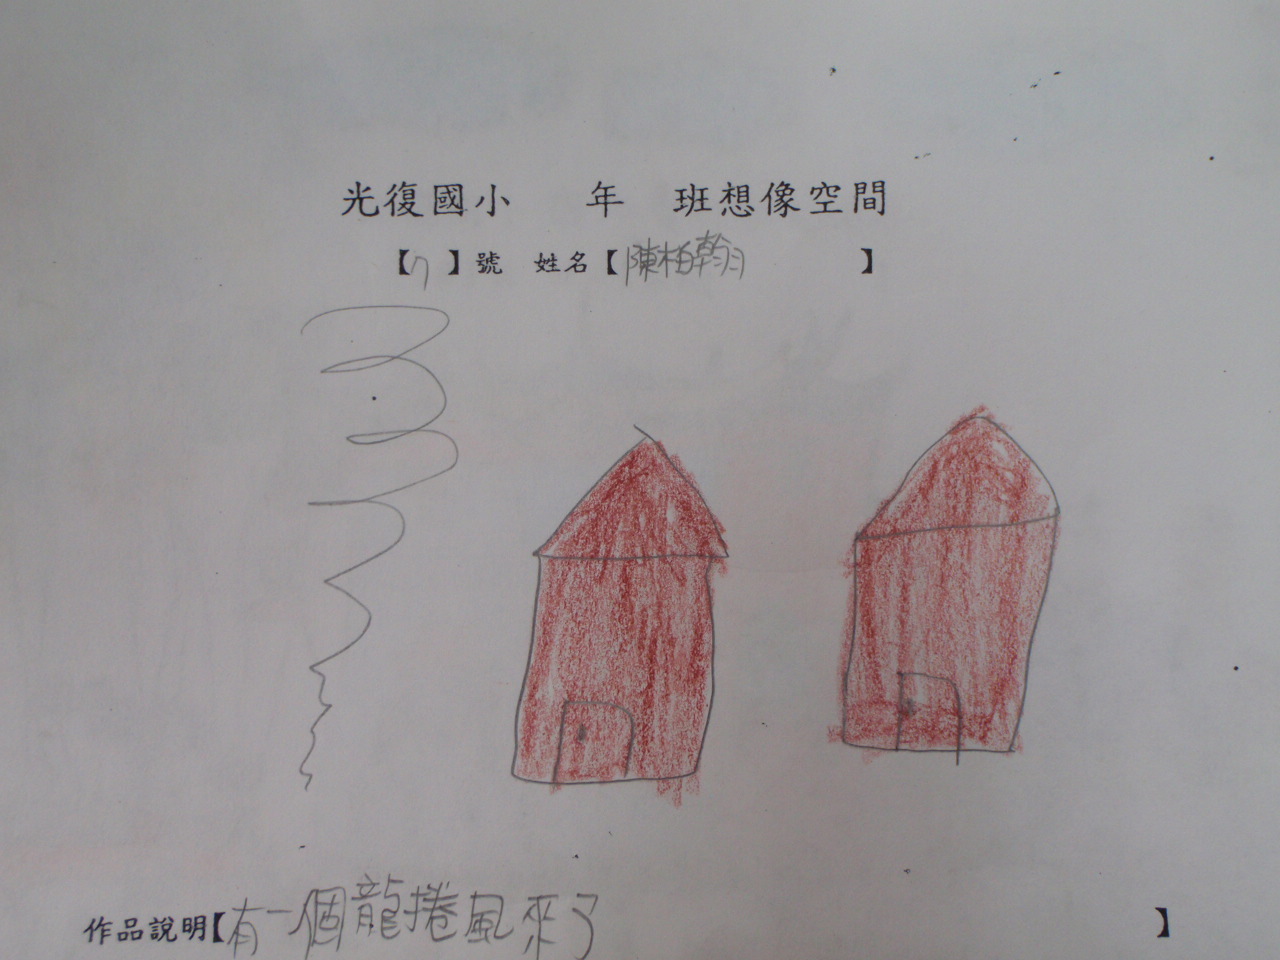 光復國小 年 班想像空間
【7】號 姓名【陳柏翰】
作品說明【有一個龍捲風來了】